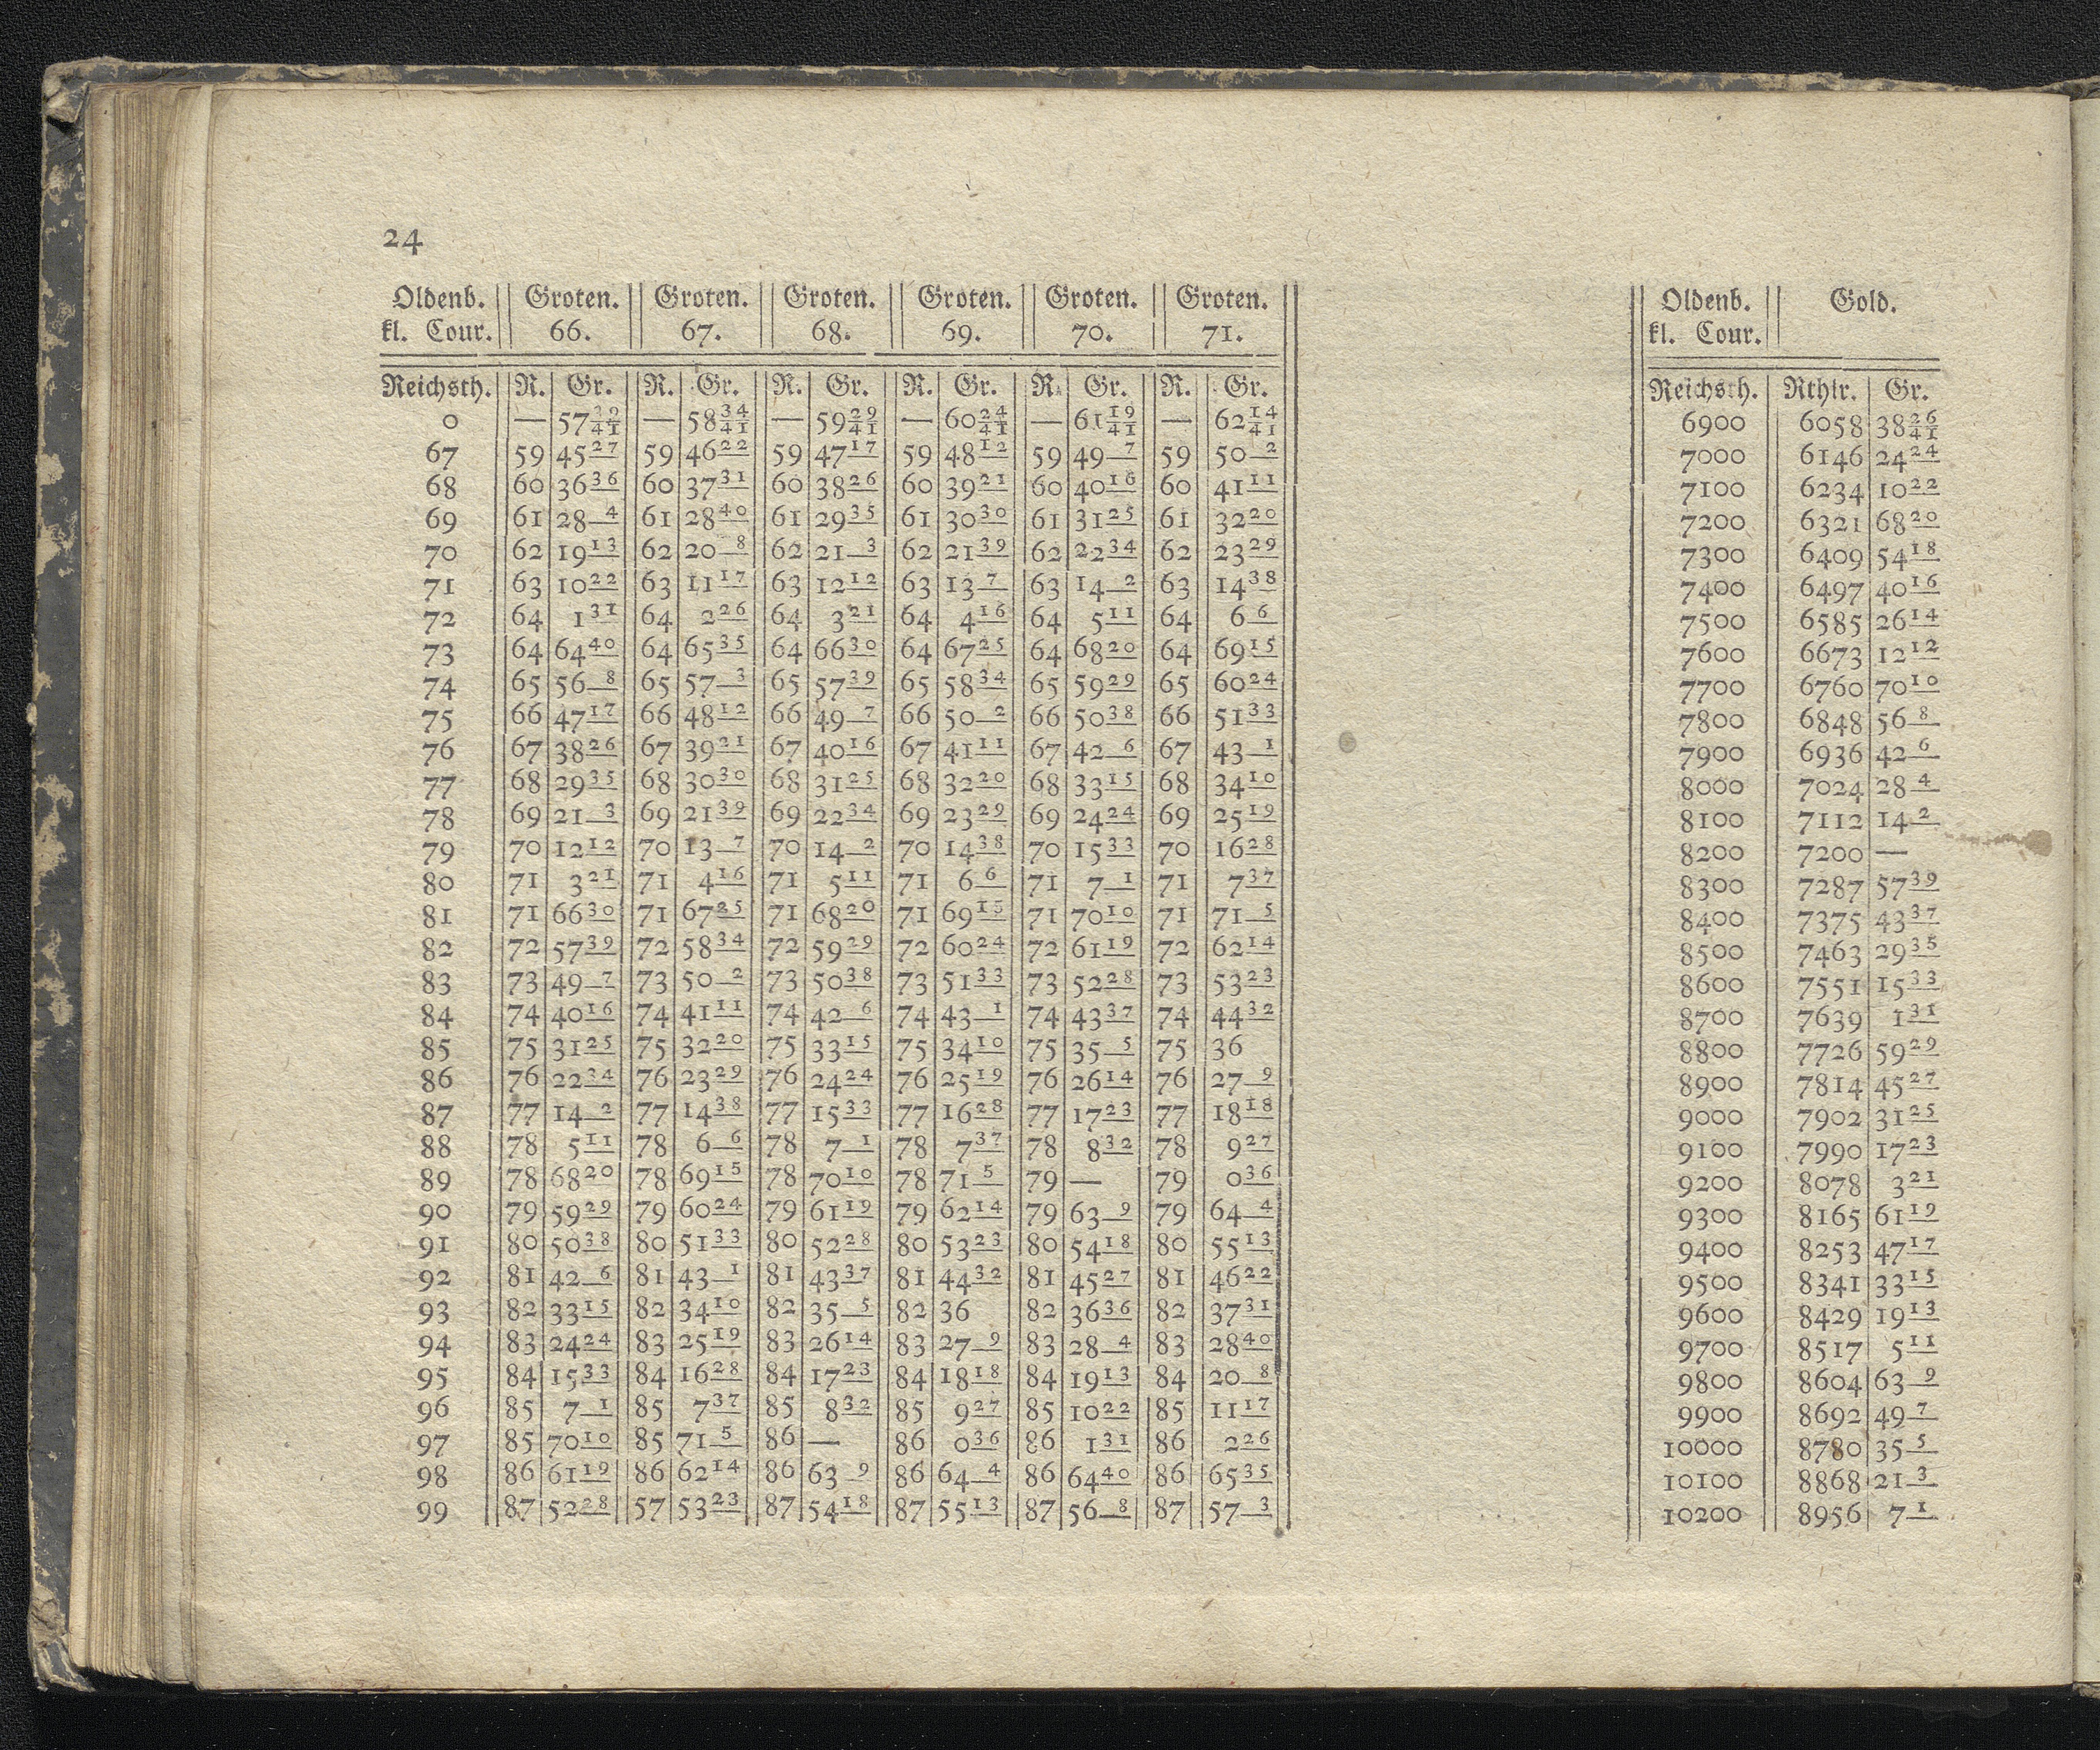 24
Oldenb. Groten. Groten. Groten. Groten. Groten. Groten.
kl. Cour. 66. 67. 68. 69. 70. 71.
Reichsth. R. Gr. R. Gr. R. Gr. R. Gr. R. Gr. R. Gr.
0 — 57 39/41 — 58 34/41 — 59 29/41 — 60 24/41 — 61 19/41 — 62 14/41
67 59 45 27 59 46 22 59 47 17 59 48 12 59 49 7 59 50 2
68 60 36 36 60 37 31 60 38 26 60 39 21 60 40 16 60 41 11
69 61 28 4 61 28 40 61 29 35 61 30 30 61 31 25 61 32 20
70 62 19 13 62 20 8 62 21 3 62 21 39 62 22 34 62 23 29
71 63 10 22 63 11 17 63 12 12 63 13 7 63 14 2 63 14 38
72 64 1 31 64 2 26 64 3 21 64 4 16 64 5 11 64 6 6
73 64 64 40 64 65 35 64 66 30 64 67 25 64 68 20 64 69 15
74 65 56 8 65 57 3 65 57 39 65 58 34 65 59 29 65 60 24
75 66 47 17 66 48 12 66 49 7 66 50 2 66 50 38 66 51 33
76 67 38 26 67 39 21 67 40 16 67 41 11 67 42 6 67 43 1
77 68 29 35 68 30 30 68 31 25 68 32 20 68 33 15 68 34 10
78 69 21 3 69 21 39 69 22 34 69 23 29 69 24 24 69 25 19
79 70 12 12 70 13 7 70 14 2 70 14 38 70 15 33 70 16 28
80 71 3 21 71 4 16 71 5 11 71 6 6 71 7 1 71 7 37
81 71 66 30 71 67 25 71 68 20 71 69 15 71 70 10 71 71 5
82 72 57 39 72 58 34 72 59 29 72 60 24 72 61 19 72 62 14
83 73 49 7 73 50 2 73 50 38 73 51 33 73 52 28 73 53 23
84 74 40 16 74 41 11 74 42 6 74 43 1 74 43 37 74 44 32
85 75 31 25 75 32 20 75 33 15 75 34 10 75 35 5 75 36
86 76 22 34 76 23 29 76 24 24 76 25 19 76 26 14 76 27 9
87 77 14 2 77 14 38 77 15 33 77 16 28 77 17 23 77 18 18
88 78 5 11 78 6 6 78 7 1 78 7 37 78 8 32 78 9 27
89 78 68 20 78 69 15 78 70 10 78 71 5 79 — 79 0 36
90 79 59 29 79 60 24 79 61 19 79 62 14 79 63 9 79 64 4
91 80 50 38 80 51 33 80 52 28 80 53 23 80 54 18 80 55 13
92 81 42 6 81 43 1 81 43 37 81 44 32 81 45 27 81 46 22
93 82 33 15 82 34 10 82 35 5 82 36 82 36 36 82 37 31
94 83 24 24 83 25 19 83 26 14 83 27 9 83 28 4 83 28 40
95 84 15 33 84 16 28 84 17 23 84 18 18 84 19 13 84 20 8
96 85 7 1 85 7 37 85 8 32 85 9 27 85 10 22 85 11 17
97 85 70 10 85 71 5 86 — 86 0 36 86 1 31 86 2 26
98 86 61 19 86 62 14 86 63 9 86 64 4 86 64 40 86 65 35
99 87 52 28 57 53 23 87 54 18 87 55 13 87 56 8 87 57 3
Oldenb. Gold.
kl. Cour.
Reichsth. Rthlr. Gr.
6900 6058 38 26/41
7000 6146 24 24
7100 6234 10 22
7200 6321 68 20
7300 6409 54 18
7400 6497 40 16
7500 6585 26 14
7600 6673 12 12
7700 6760 70 10
7800 6848 56 8
7900 6936 42 6
8000 7024 28 4
8100 7112 14 2
8200 7200 —
8300 7287 57 39
8400 7375 43 37
8500 7463 29 35
8600 7551 15 33
8700 7639 1 31
8800 7726 59 29
8900 7814 45 27
9000 7902 31 25
9100 7990 17 23
9200 8078 3 21
9300 8165 61 19
9400 8253 47 17
9500 8341 33 15
9600 8429 19 13
9700 8517 5 11
9800 8604 63 9
9900 8692 49 7
10000 8780 35 5
10100 8868 21 3
10200 8956 7 1